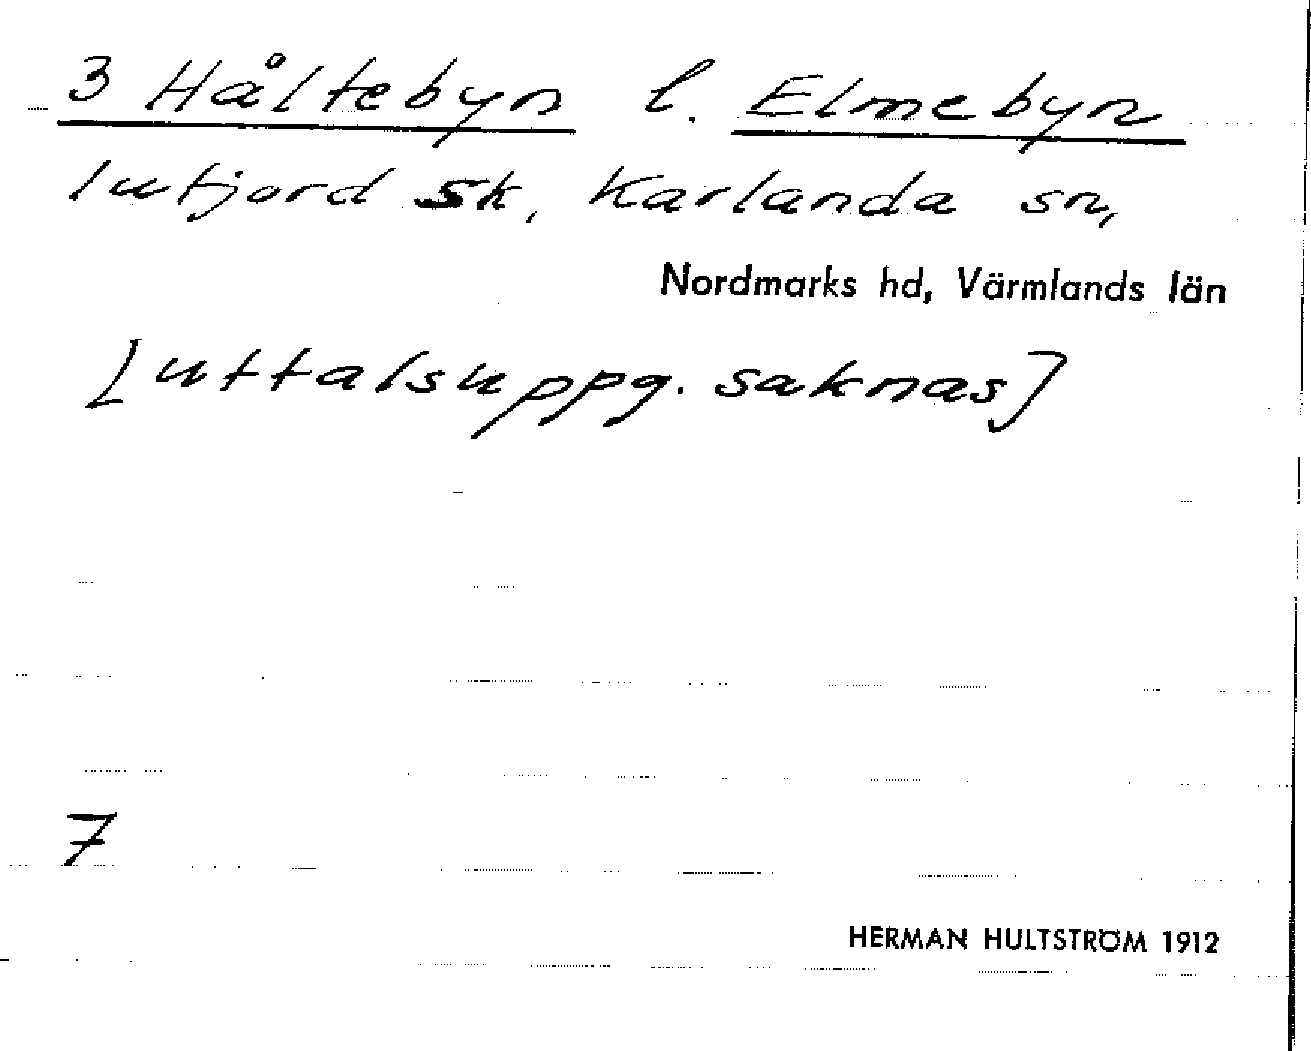 3 Håltebyn l. Elmebyn
lutjord sk, Karlanda sn,
Nordmarks hd, Värmlands län
[uttalsuppg. saknas]
7
HERMAN HULTSTRÖM 1912